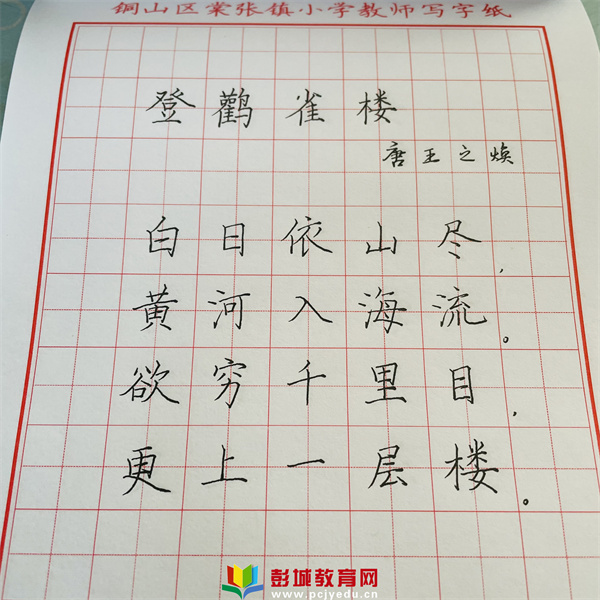 铜山区棠张镇小学教师写字纸
登鹳雀楼
唐王之焕
白日依山尽,
黄河入海流。
欲穷千里目,
更上一层楼。
彭城教育网
www.pcjyedu.cn